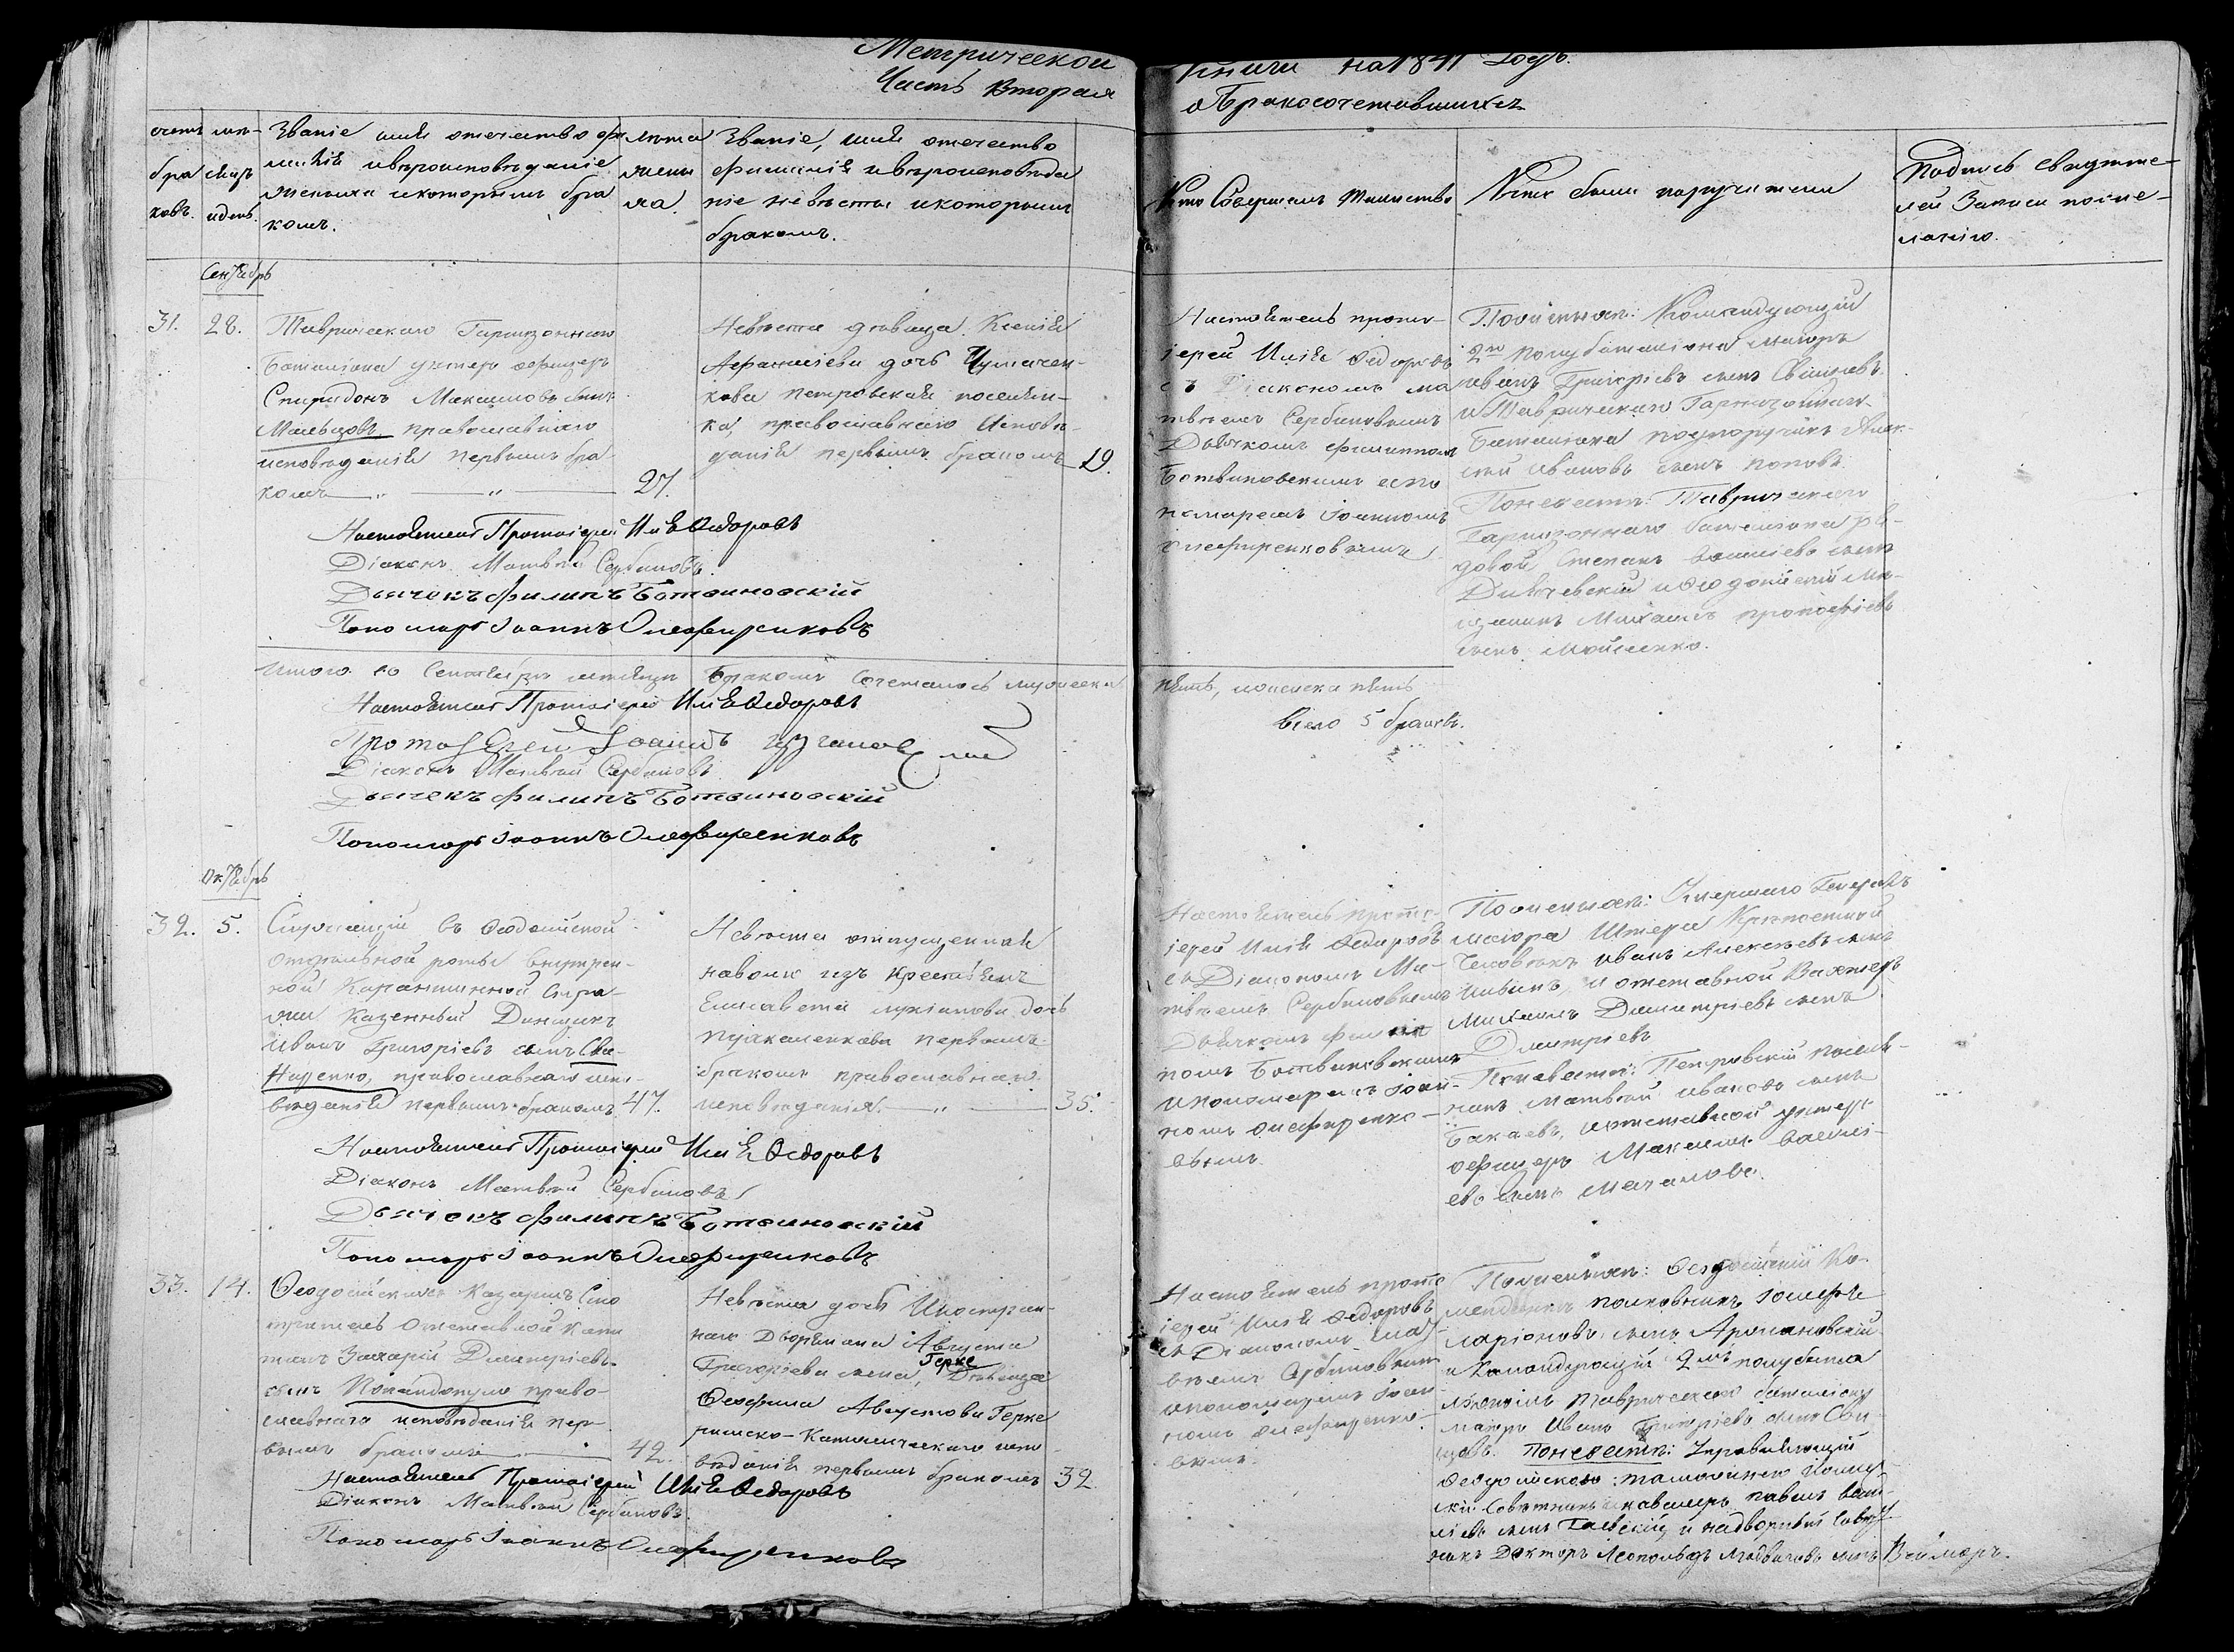 Метрической
Часть Вторая
книги на 1841 Годъ.
о Бракосочетавшихся
счетъ бра ковъ.
мѣ- сяцъ и день.
Званіе имя отечество фа
милія и вѣроисповѣданіе
жениха и которымъ бра
комъ.
лѣта
жени
ха.
Званіе, имя отечество
фамилія и вѣроисповѣда
ніе невѣсты и которымъ
бракомъ.
Кто Совершалъ таинство
Кто были поручители
Подпись свидѣте-
лей Записи по же-
ланію.
Сентябрь
31. 28.
Таврическаго Гарнизоннаго
Баталіона унтеръ офицеръ
Спиридонъ Максимовъ сынъ
Мальцовъ православнаго
исповѣданія первымъ бра-
комъ 27.
Невѣста дѣвица Ксенія
Афанасіева дочь Чумачен-
кова Петровская поселян-
ка, православнаго Исповѣ-
данія первымъ бракомъ 19.
Настоятель прото-
іерей Илія Ѳедоровъ
съ Діакономъ Ма
твѣемъ Сербиновымъ
Дьячкомъ Филиппомъ
Ботвиновскимъ и по
номаремъ Іоанномъ
Олефиренковымъ
По женихѣ: Командующій
2го полубаталіона маіоръ
Иванъ Григорьевъ сынъ Свинцовъ
и Таврическаго Гарнизоннаго
Баталіона подпоручикъ Алек-
сѣй Ивановъ сынъ Поповъ
По невѣстѣ: Таврическаго
Гарнизоннаго баталіона ря-
довой Степанъ Василіевъ сынъ
и Ѳеодосійскій мѣ-
щанинъ Михаилъ Прокофіевъ
сынъ Мойсенко.
Настоятель Протоіерей Илія Ѳедоровъ
Діаконъ Матвѣй Сербиновъ.
Дьячекъ Филипъ Ботвиновскій
Пономарь Іоаннъ Олефиренковъ
Итого въ Сентябрѣ мѣсяцѣ Бракомъ Сочеталось мужеска
пять, женска пять
Всего 5 браковъ.
Настоятель Протоіерей Илія Ѳедоровъ
Протоіерей Іоаннъ
Діаконъ Матвѣй Сербиновъ
Дьячекъ Филипъ Ботвиновскій
Пономарь Іоаннъ Олефиренковъ
Октябрь
32. 5.
Служащій въ Ѳеодосійской
отдѣльной роты внутрен-
ной Карантинной Стра-
жи Казенный Денщикъ
Иванъ Григоріевъ сынъ Сви-
наренко, православнаго испо-
вѣданія первымъ бракомъ 47.
Невѣста отпущенная
на волю изъ крестьянъ
Елисавета Лукіанова дочь
первымъ
бракомъ православнаго
исповѣданія. 35.
Настоятель прото-
іерей Илія Ѳедоровъ
съ Діакономъ Ма-
твѣемъ Сербиновымъ
Дьячкомъ Филип
помъ Ботвиновскимъ
и пономаремъ Іоан-
номъ Олефиренко-
вымъ.
По женихѣ: Умершаго Генералъ
маіора Штера Крѣпостной
Человѣкъ Иванъ Алексѣевъ сынъ
и отставной Вахтеръ
Михаилъ Димитріевъ сынъ
Дмитріевъ
По невѣстѣ: Петровскій поселя-
нинъ Матвѣй Ивановъ сынъ
Бакаевъ, и отставной унтеръ
офицеръ Максимъ Василі-
евъ сынъ Мачановъ.
Настоятель Протоіерей Илія Ѳедоровъ
Діаконъ Матвѣй Сербиновъ
Дьячекъ Филипъ Ботвиновскій
Пономарь Іоаннъ Олефиренковъ
33. 14.
Ѳеодосійскихъ Казармъ Смо
тритель Отставной капи
танъ Захарій Димитріевъ
сынъ Попандопуло право-
славнаго исповѣданія пер-
вымъ бракомъ 42.
Невѣста дочь Иностран-
наго Дворянина Августа
Григоріева сына, Герке Дѣвица
Ѳеофила Августова Герке
римско-Католическаго испо-
вѣданія первымъ бракомъ 32
Настоятель прото
іерей Илія Ѳедоровъ
съ Діакономъ Мат-
вѣемъ Сербиновымъ
и пономаремъ Іоан-
номъ Олефиренко-
вымъ.
По женихѣ: Ѳеодосійскій Ко-
мендантъ полковникъ Іосифъ
Ларіоновъ сынъ Аркановскій
и Командующій 2мъ полубата
ліономъ Таврическаго баталіону
маіоръ Иванъ Григріевъ сынъ Сви
нцовъ. По невѣстѣ: Управляющій
Ѳеодосійскою таможнею Колле-
жскій Совѣтникъ и кавалеръ Павелъ Васи-
ліевъ сынъ Гаевскій и надворный Совѣт
никъ Докторъ Леопольдъ Людвиговъ сынъ Веймаръ.
Настоятель Протоіерей Илія Ѳедоровъ
Діаконъ Матвѣй Сербиновъ.
Пономарь Іоаннъ Олефиренковъ